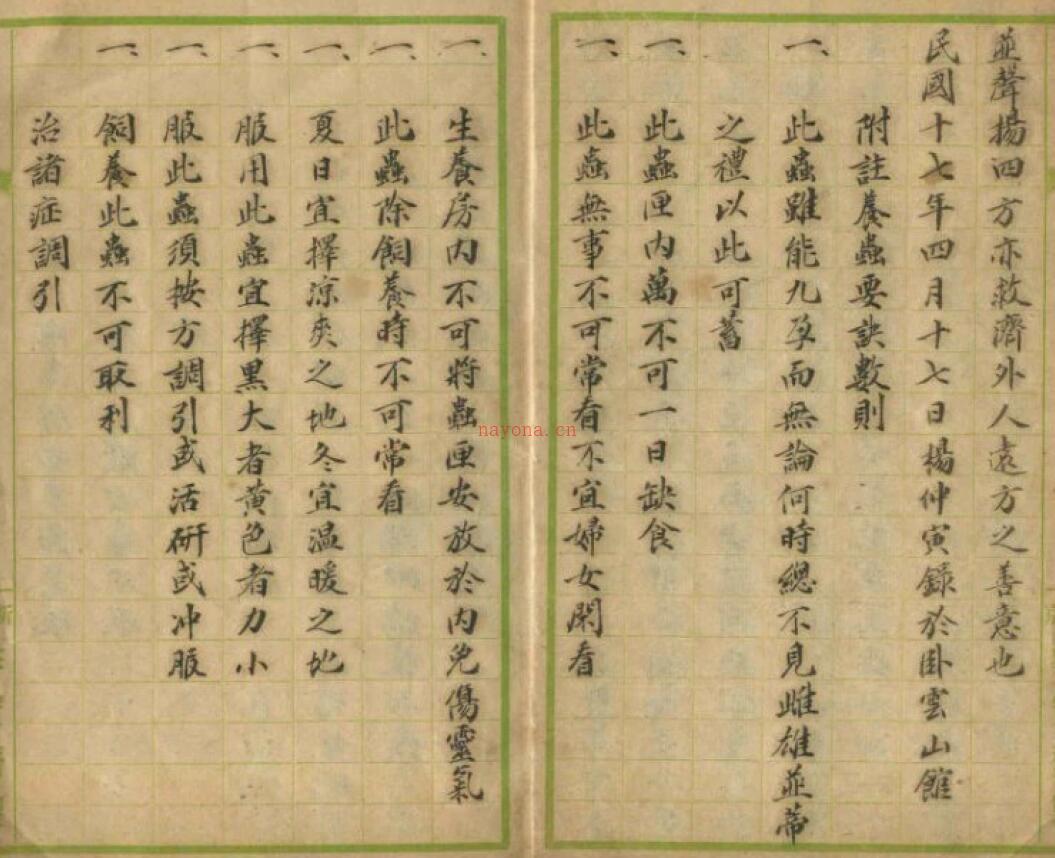 並聲揚四方亦救濟外人遠方之善意也
民國十七年四月十七日楊仲寅錄於卧雲山館
附註養蟲要訣數則
一、此蟲雖能九孕而無論何時總不見雌雄並蒂
之禮以此可蓄
一、此蟲匣內萬不可一日缺食
一、此蟲無事不可常看不宜婦女閑看
一、生養房內不可將蟲匣安放於內免傷靈氣
一、此蟲除飼養時不可常看
一、夏日宜擇涼爽之地冬宜温暖之地
一、服用此蟲宜擇黑大者黄色者力小
一、服此蟲須按方調引或活研或冲服
一、飼養此蟲不可取利
治諸症調引
nayona.cn